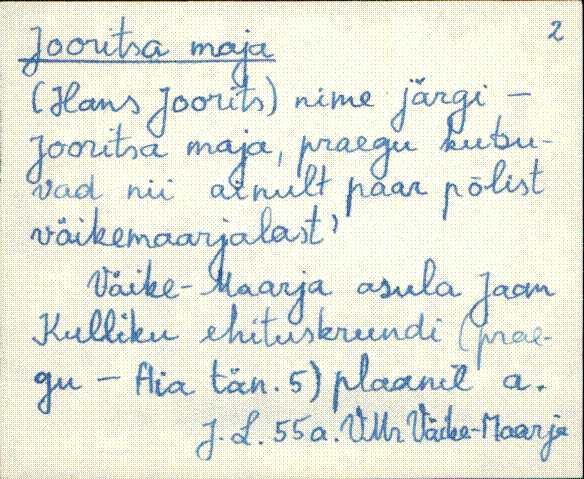 2
Jooritsa maja
(Hans Joorits) nime järgi –
Jooritsa maja, praegu kutsu-
vad nii ainult paar põlist
väikemaarjalast'
Väike-Maarja asula Jaan
Kulliku ehituskrundi (prae-
gu – Aia tän. 5) plaanil a.
J. L. 55 a. VMr Väike-Maarja